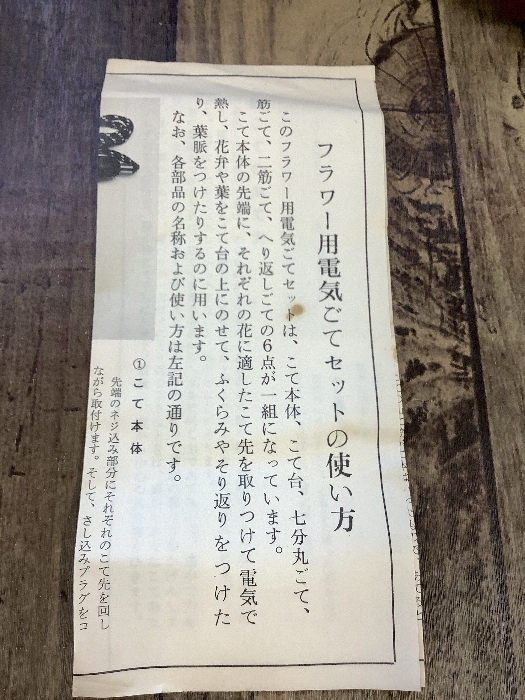 フラワー用電気ごてセットの使い方
このフラワー用電気ごてセットは、こて本体、こて台、七分丸ごて、
筋ごて、二筋ごて、へり返しごての6点が一組になっています。
こて本体の先端に、それぞれの花に適したこて先を取りつけて電気で
熱し、花弁や葉をこて台の上にのせて、ふくらみやそり返りをつけた
り、葉脈をつけたりするのに用います。
なお、各部品の名称および使い方は左記の通りです。
①こて本体
先端のネジ込み部分にそれぞれのこて先を回し
ながら取付けます。そして、さし込みプラグをコ